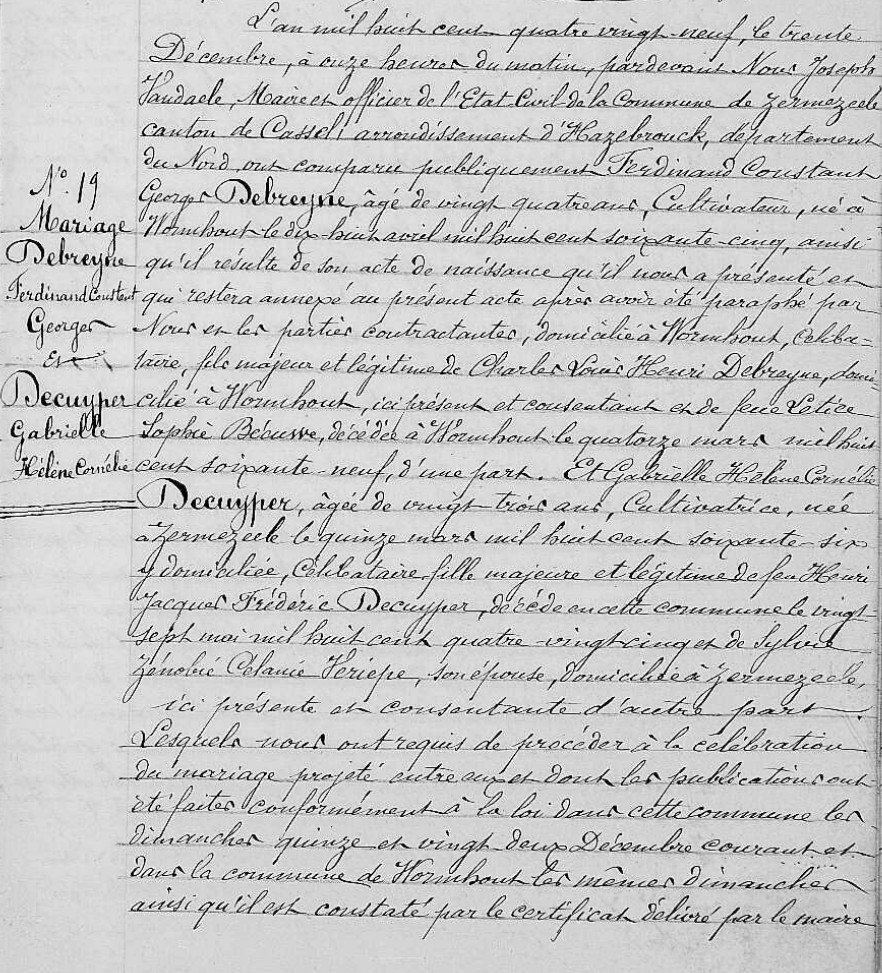 L'an mil huit cent quatre vingt-neuf, le trente
Décembre, à onze heures du matin, pardevant Nous Joseph
Vandaele, Maire et officier de l'Etat-Civil de la Commune de Zermezeele
canton de Cassel, arrondissement d'Hazebrouck, département
du Nord, ont comparu publiquement Ferdinand Constant
Georges Debreyne, âgé de vingt quatre ans, Cultivateur, né à
Wormhout le dix-huit avril mil huit cent soixante-cinq, ainsi
qu'il résulte de son acte de naissance qu'il nous a présenté et
qui restera annexé au présent acte après avoir été paraphé par
Nous et les parties contractantes, domicilié à Wormhout, céliba-
taire, fils majeur et légitime de Charles Louis Henri Debreyne, domi-
cilié à Wormhout, ici présent et consentant et de feue Letice
Sophie Bécuwe, décédée à Wormhout le quatorze mars mil huit
cent soixante-neuf, d'une part. Et Gabrielle Hélène Cornélie
Decuyper, âgée de vingt trois ans, Cultivatrice, née
à Zermezeele le quinze mars mil huit cent soixante-six
y domiciliée, Célibataire, fille majeure et légitime de feu Henri
Jacques Frédéric Decuyper, décédé en cette commune le vingt-
sept mai mil huit cent quatre-vingt cinq et de Sylvie
Zénobie Célanie Heriepe, son épouse, domiciliée à Zermezeele,
ici présente et consentante d'autre part.
Lesquels nous ont requis de procéder à la célébration
du mariage projeté entre eux et dont les publications ont
été faites conformément à la loi dans cette commune les
dimanches quinze et vingt-deux Décembre courant et
dans la commune de Wormhout les mêmes dimanches
ainsi qu'il est constaté par le certificat délivré par le maire
No. 19
Mariage
Debreyne
Ferdinand Constant
Georges
Et
Decuyper
Gabrielle
Hélène Cornélie